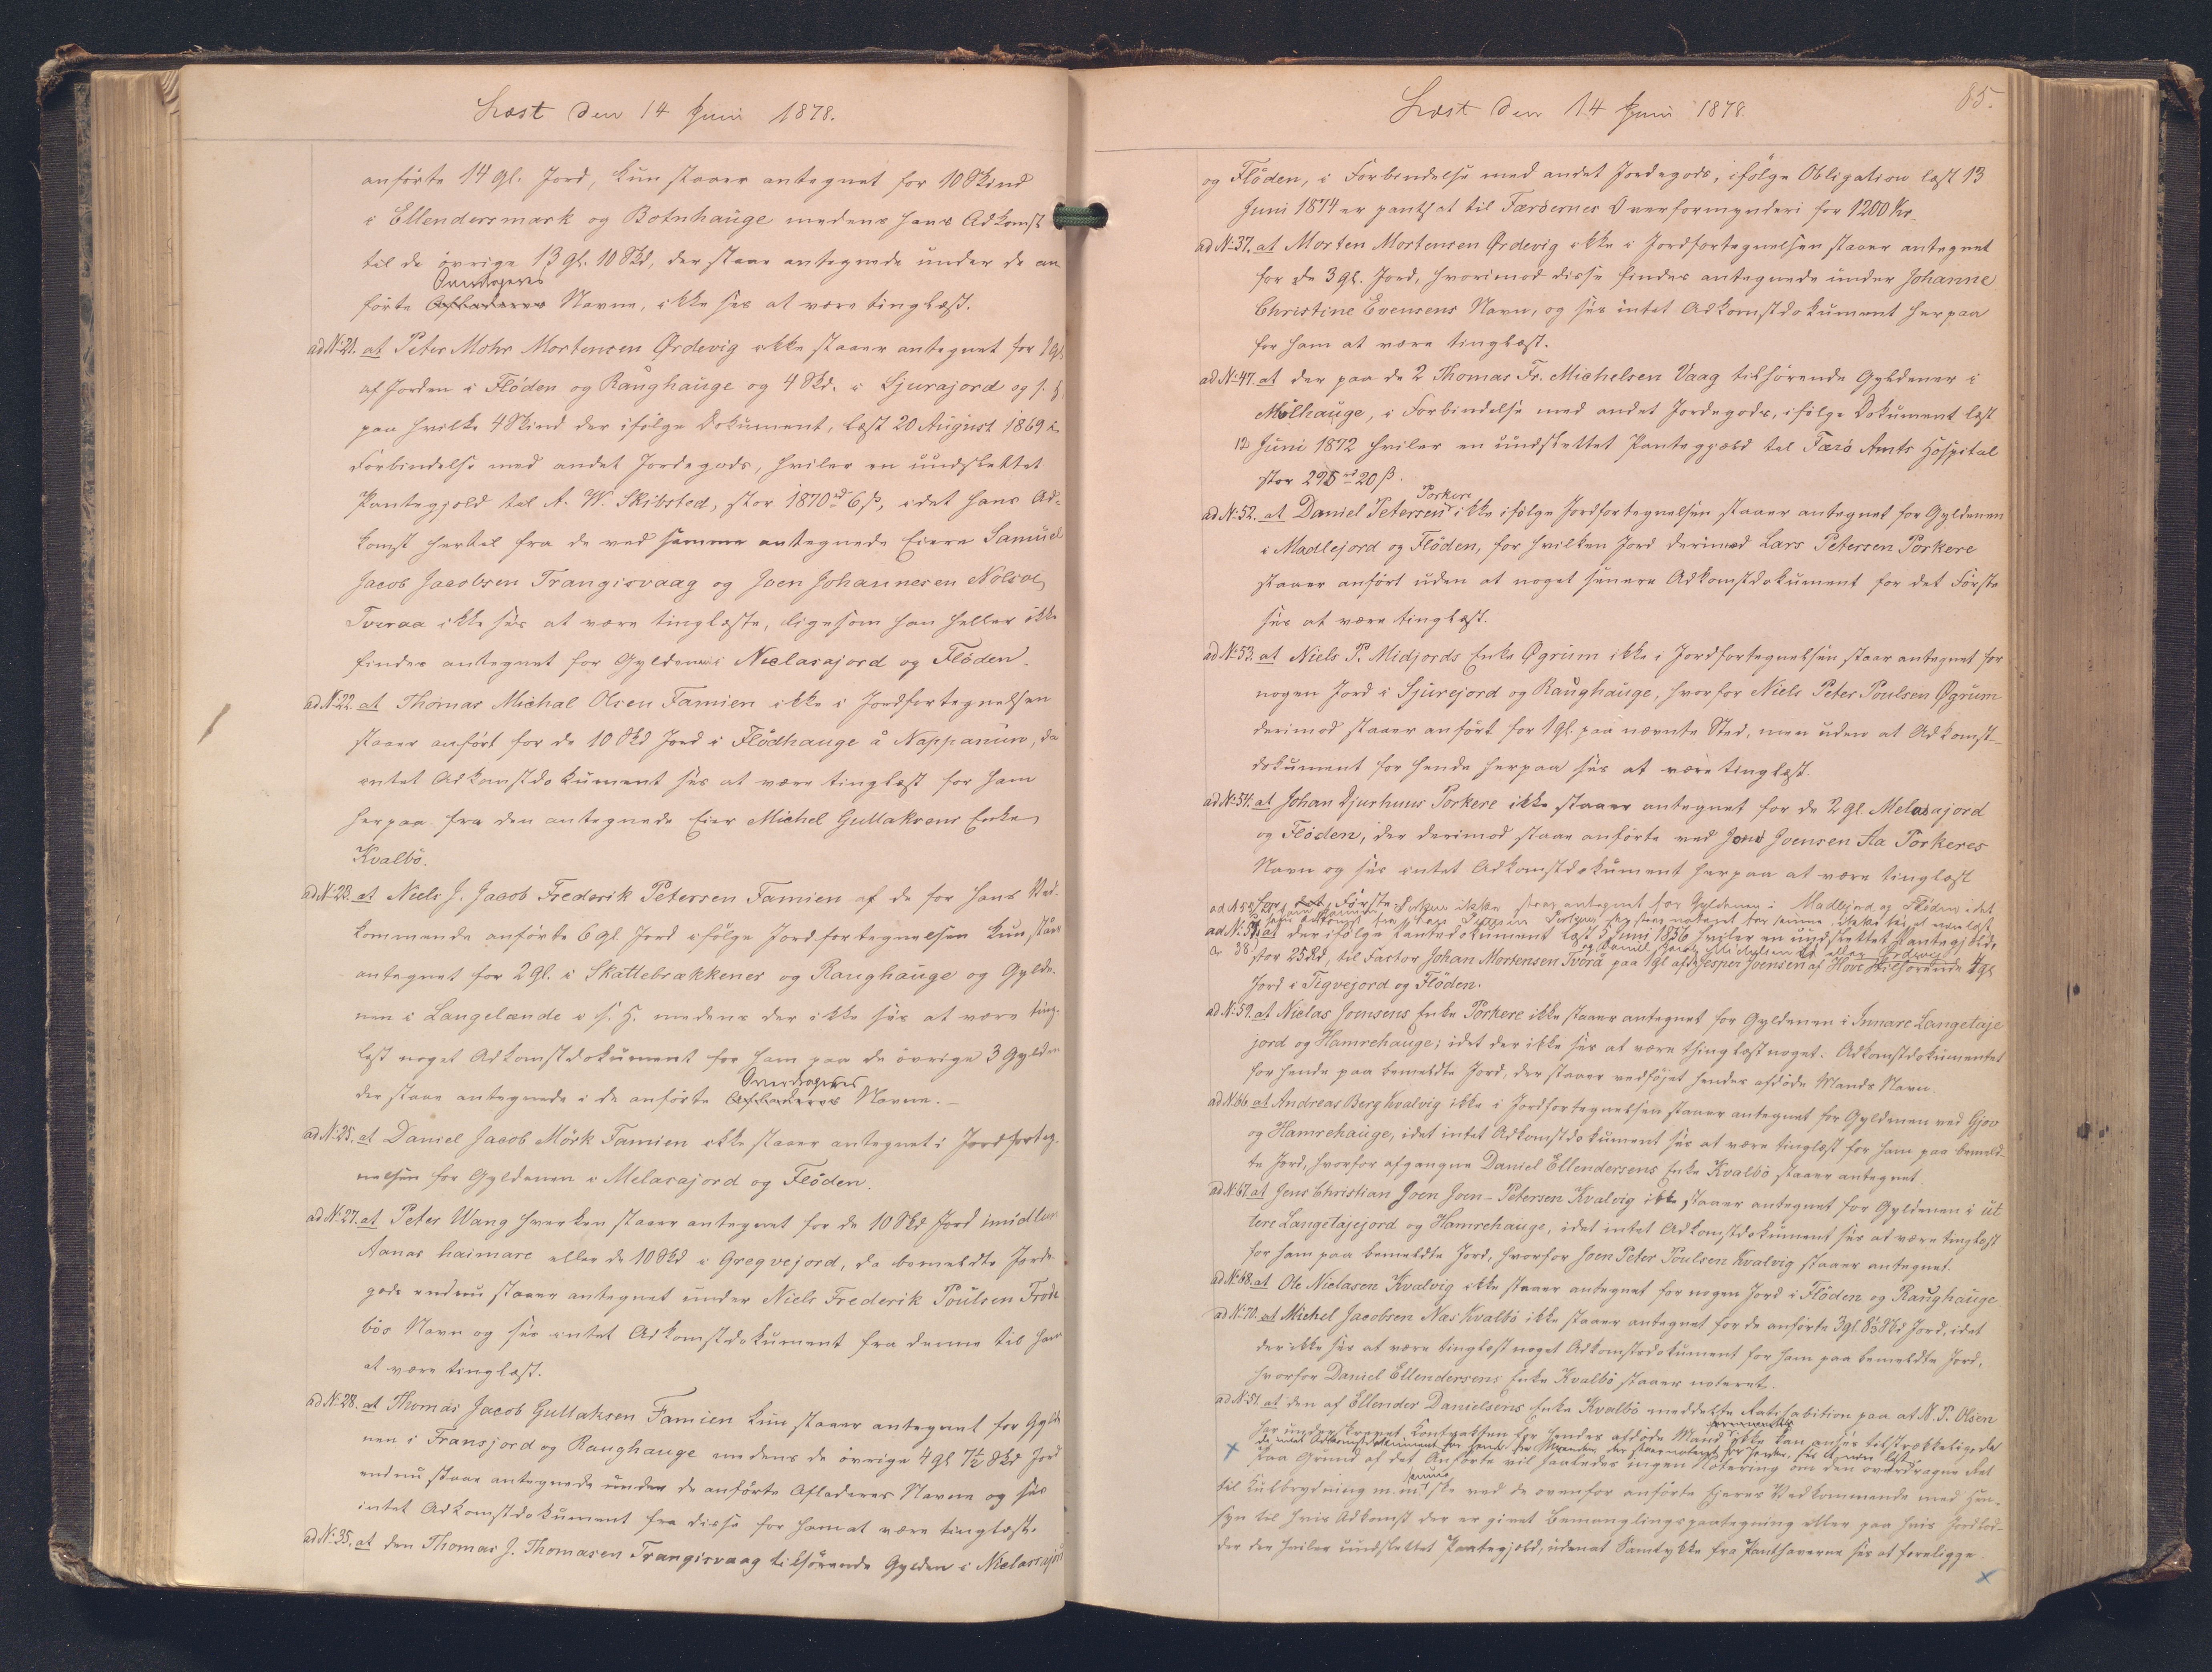 Læst den 14 Juni 1878.
anførte 14 Gl. Jord, kun staaer antegnet for 10 Skind
i Ellendersmark og Botnhauge medens hans Adkomst
til de övrige 13 Gl. 10 Skd, der staae antegnede under de an
Overdrageres
førte Afladeres Navne, ikke sees at være tinglæst.
ad No 21. at Peter Mohr Mortensen Ørdevig ikke staaer antegnet for 1 Gl.
af Jorden i Flöden og Raughauge og 4 Skd. i Sjurajord og s. H.
paa hvilke 4 Skind der ifølge Dokument, læst 20 August 1869 i
Forbindelse med andet Jordegods, hviler en uudslettet
Pantegjæld til A. W. Skibsted, stor 1870 rd 6 ß, idet hans Ad-
komst hertil fra de ved samme antegnede Eiere Samuel
Jacob Jacobsen Trangisvaag og Joen Johannesen Nolsoe,
Tveraa ikke sees at være tinglæste, ligesom han heller ikke
findes antegnet for Gyldenen i Nielasajord og Flöden.
ad No 22. at Thomas Michal Olsen Famien ikke i Jordfortegnelsen
staaer anført for de 10 Skd Jord i Flödhauge å Nappanum, da
intet Adkomstdokument sees at være tinglæst for ham
herpaa fra den antegnede Eier Michel Gullaksens Enke
Kvalbö.
ad No 23. at Niels J. Jacob Frederik Petersen Famien af de for hans Ved-
kommende anførte 6 gl. Jord ifølge Jordfortegnelsen kun staaer
antegnet for 2 Gl. i Skattebrækkener og Raughauge og Gylde-
nen i Langelande i s. H. medens der ikke sees at være ting-
læst noget Adkomstdokument for ham paa de övrige 3 Gylden
Overdrageres
der staae antegnede i de anførte Afladeres Navne.-
ad No 25. at Daniel Jacob Mörk Famien ikke staaer antegnet i Jordforteg-
nelsen for Gyldenen i Melasajord og Flöden.
ad No 27. at Peter Wang hverken staaer antegnet for de 10 Skd Jord imidlun
Aanas haimare eller de 10 Skd i Gregvejord, da bemeldte Jorde-
gods endnu staaer antegnet under Niels Frederik Poulsen Frode-
böes Navn og sees intet Adkomstdokument fra denne til ham
at være tinglæst.
ad No 28. at Thomas Jacob Gullaksen Famien kun staaer antegnet for Gylde-
nen i Fransjord og Raughauge medens de övrige 4 gl 7½ Skd Jord
endnu staae antegnede under de anførte Afladeres Navne og sees
intet Adkomstdokument fra disse for ham at være tinglæst.
ad No 35. at den Thomas J. Thomasen Trangisvaag tilhørende Gylden i Nielasajord
Læst den 14 Juni 1878. 85.
og Flöden, i Forbindelse med andet Jordegods, ifølge Obligation læst 13
Juni 1874 er pantsat til Færöernes Overformynderi for 1200 Kr.
ad No 37. at Morten Mortensen Ørdevig ikke i Jordfortegnelsen staaer antegnet
for de 3 gl. Jord, hvorimod disse findes antegnede under Johanne
Christine Evensens Navn, og sees intet Adkomstdokument herpaa
for ham at være tinglæst.
ad No 47. at der paa de 2 Thomas Fr. Michelsen Vaag tilhørende Gyldener i
Mölhauge, i Forbindelse med andet Jordegods, ifølge Dokument læst
12 Juni 1872 hviler en uudslettet Pantegjæld til Færö Amts Hospital
stor 295 rd 20 ß.
Porkere
ad No 52. at Daniel Petersen ikke ifølge Jordfortegnelsen staaer antegnet for Gyldenen
i Madlejord og Flöden, for hvilken Jord derimod Lars Petersen Porkere
staaer anført uden at noget senere Adkomstdokument for det Første
sees at være tinglæst.
ad No 53. at Niels P. Midjords Enke Øgrim ikke i Jordfortegnelsen staaer antegnet for
nogen Jord i Sjurejord og Raughauge, hvorfor Niels Peter Poulsen Øgrum
derimod staaer anført for 1 gl. paa nævnte Sted, men uden at Adkomst-
dokument for hende herpaa sees at være tinglæst.
ad No 54. at Johan Djurhuus Porkere ikke staaer antegnet for de 2 gl. Melasajord
og Flöden, der derimod staae anførte ved Jens Joensen Aa Porkeres
Navn og sees intet Adkomstdokument herpaa at være tinglæst
for det Første
staaer antegnet for Gyldenen i Madlejord og Flöden idet
ad No 56. at der ifølge Pantedokument læst 5 Juni 1856 hviler en uudslettet Pantegjæld,
stor 25 Rd, til Factor Johan Mortensen Tverå paa 1 gl af de Jesper Joensen af Hove tilhørende 4 gl
Jord i Tigvejord og Flöden.
ad No 59. at Nielas Joensens Enke Porkere ikke staaer antegnet for Gyldenen i Innare Langetaje
jord og Hamrehauge; idet der ikke sees at være thinglæst noget Adkomstdokumentet
for hende paa bemeldte Jord, der staaer vedføjet hendes afdöde Mands Navn.
ad No 66. at Andreas Berg Kvalvig ikke i Jordfortegnelsen staaer antegnet for Gyldenen ved Gjov
og Hamrehauge, idet intet Adkomstdokument sees at være tinglæst for ham paa bemeld-
te Jord, hvorfor afgangne Daniel Ellendersens Enke Kvalbö staaer antegnet.
ad No 67. at Jens Christian Joen Joen-Petersen Kvalvig ikke staaer antegnet for Gyldenen i ut
tere Langetajejord og Hamrehauge, idet intet Adkomstdokument sees at være tinglæst
for ham paa bemeldte Jord, hvorfor Joen Peter Poulsen Kvalvig staaer antegnet.
ad No 68. at Ole Nielasen Kvalvig ikke staaer antegnet for nogen Jord i Flöden og Raughauge
ad No 70. at Michel Jacobsen Næs Kvalbö ikke staaer antegnet for de anførte 3 gl. 8⅓ Skd Jord, idet
der ikke sees at være tinglæst noget Adkomstdokument for ham paa bemeldte Jord,
hvorfor Daniel Ellendersens Enke Kvalbö staaer noteret.
ad No 51. at den af Ellender Danielsens Enke Kvalbö meddelte Ratihabition paa at N. P. Olsen
har underskrevet Kontrakten for hendes afdöde Mand ikke kan ansees tilstrækkelig, da
da intet Adkomstdokument for hende fra Manden der staaer noteret for Jorden, sees at være læst
x paa Grund af det Anførte vil saaledes ingen Notering om den overdragne Ret
til Kulbrydning m. m. ske ved de ovenfor anførte Ejeres Vedkommende med Hen-
syn til hvis Adkomst der er givet Bemanglingspaategning eller paa hvis Jordlod-
der der hviler uudslettet Pantegjæld, uden at Samtykke fra Panthaverne sees at foreligge.
x